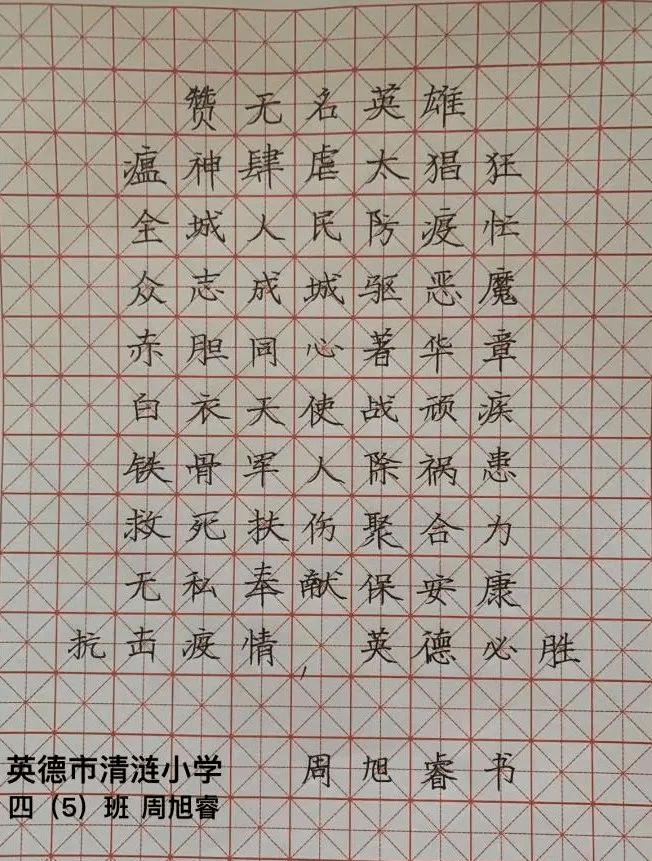 赞无名英雄
瘟神肆虐太猖狂
全城人民防疫忙
众志成城驱恶魔
赤胆同心著华章
白衣天使战顽疾
铁骨军人除祸患
救死扶伤聚合力
无私奉献保安康
抗击疫情，英德必胜
周旭睿书
英德市清涟小学
四（5）班 周旭睿